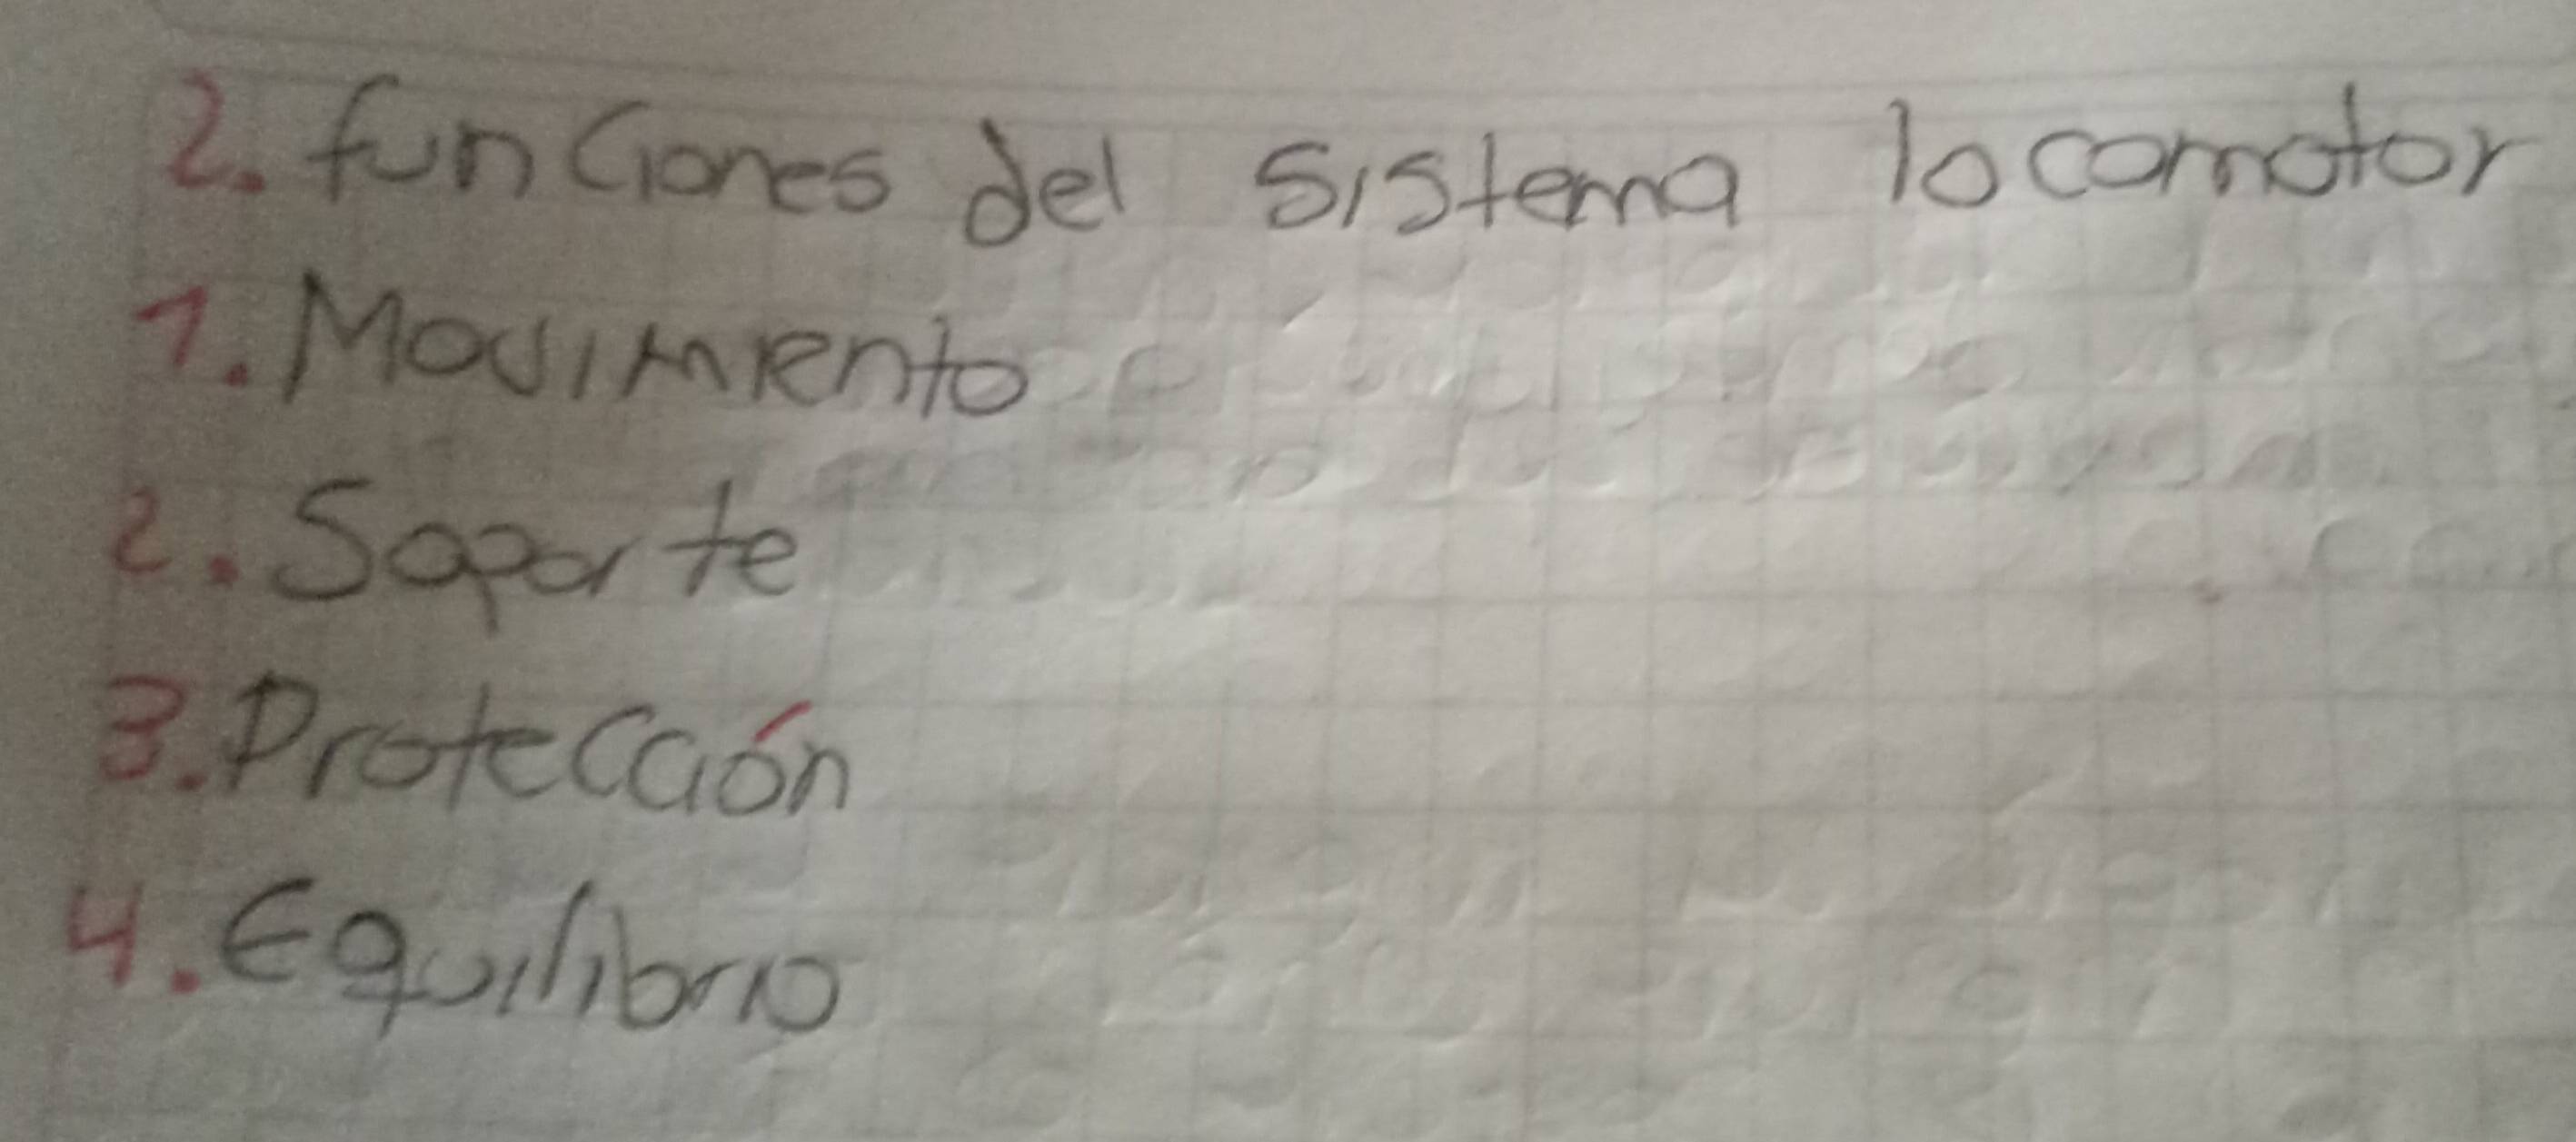 2. funciones del sistema locomotor
1. Movimiento
2. Soporte
3. Protección
4. Equilibrio